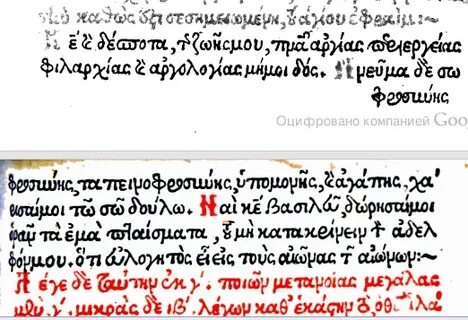 ἁγίου ἐφραίμ :~
Κε καὶ δέσποτα, τῆς ζωῆς μου, πνα ἀργίας περιεργείας
φιλαρχίας καὶ ἀργολογίας μή μοι δός. Πνεῦμα δὲ σω
φροσύνης
Оцифровано компанией Goo
φροσύνης, ταπεινοφροσύνης, ὑπομονῆς, καὶ ἀγάπης, χά
ρισαί μοι τῶ σῶ δούλω. Ναὶ κε βασιλεῦ, δώρησαί μοι
ὁρᾶν τὰ ἐμὰ πταίσματα, καὶ μὴ κατακρίνειν τὸν ἀδελ
φόν μου. ὅτι εὐλογητὸς εἶ εἰς τοὺς αἰῶνας τῶν αἰώνων :~
Λέγε δὲ ταύτην ἐκ γ΄. ποιῶν μετανοίας μεγάλας
μὲν γ΄, μικρὰς δὲ ιβ΄. λέγων καθ' ἑκάστην